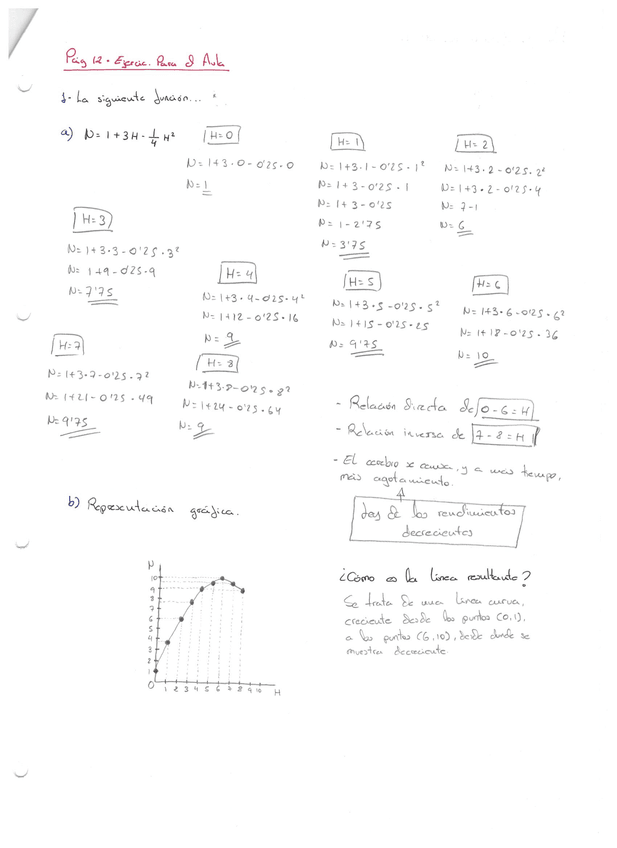 Pág 12 • Ejercic. Para el Aula
1- La siguiente función...
a) N= 1+3H - 1/4 H²
H=0
N= 1+3·0-0'25·0
N= 1
H=1
N= 1+3·1-0'25·1²
N= 1+3-0'25·1
N= 1+3-0'25
N= 1-2'75
N= 3'75
H=2
N= 1+3·2-0'25·2²
N= 1+3·2-0'25·4
N= 7-1
N= 6
H=3
N= 1+3·3-0'25·3²
N= 1+9-0'25·9
N= 7'75
H=4
N= 1+3·4-0'25·4²
N= 1+12-0'25·16
N= 9
H=5
N= 1+3·5-0'25·5²
N= 1+15-0'25·25
N= 9'75
H=6
N= 1+3·6-0'25·6²
N= 1+18-0'25·36
N= 10
H=7
N= 1+3·7-0'25·7²
N= 1+21-0'25·49
N= 9'75
H=8
N= 1+3·8-0'25·8²
N= 1+24-0'25·64
N= 9
- Relación directa de 0-6=H
- Relación inversa de 7-8=H
- El cerebro se cansa, y a más tiempo,
más agotamiento.
Ley de los rendimientos
decrecientes
b) Representación gráfica.
N
10
9
8
7
6
5
4
3
2
1
0
1 2 3 4 5 6 7 8 9 10 H
¿Cómo es la línea resultante?
Se trata de una línea curva,
creciente desde los puntos (0,1),
a los puntos (6,10), desde donde se
muestra decreciente